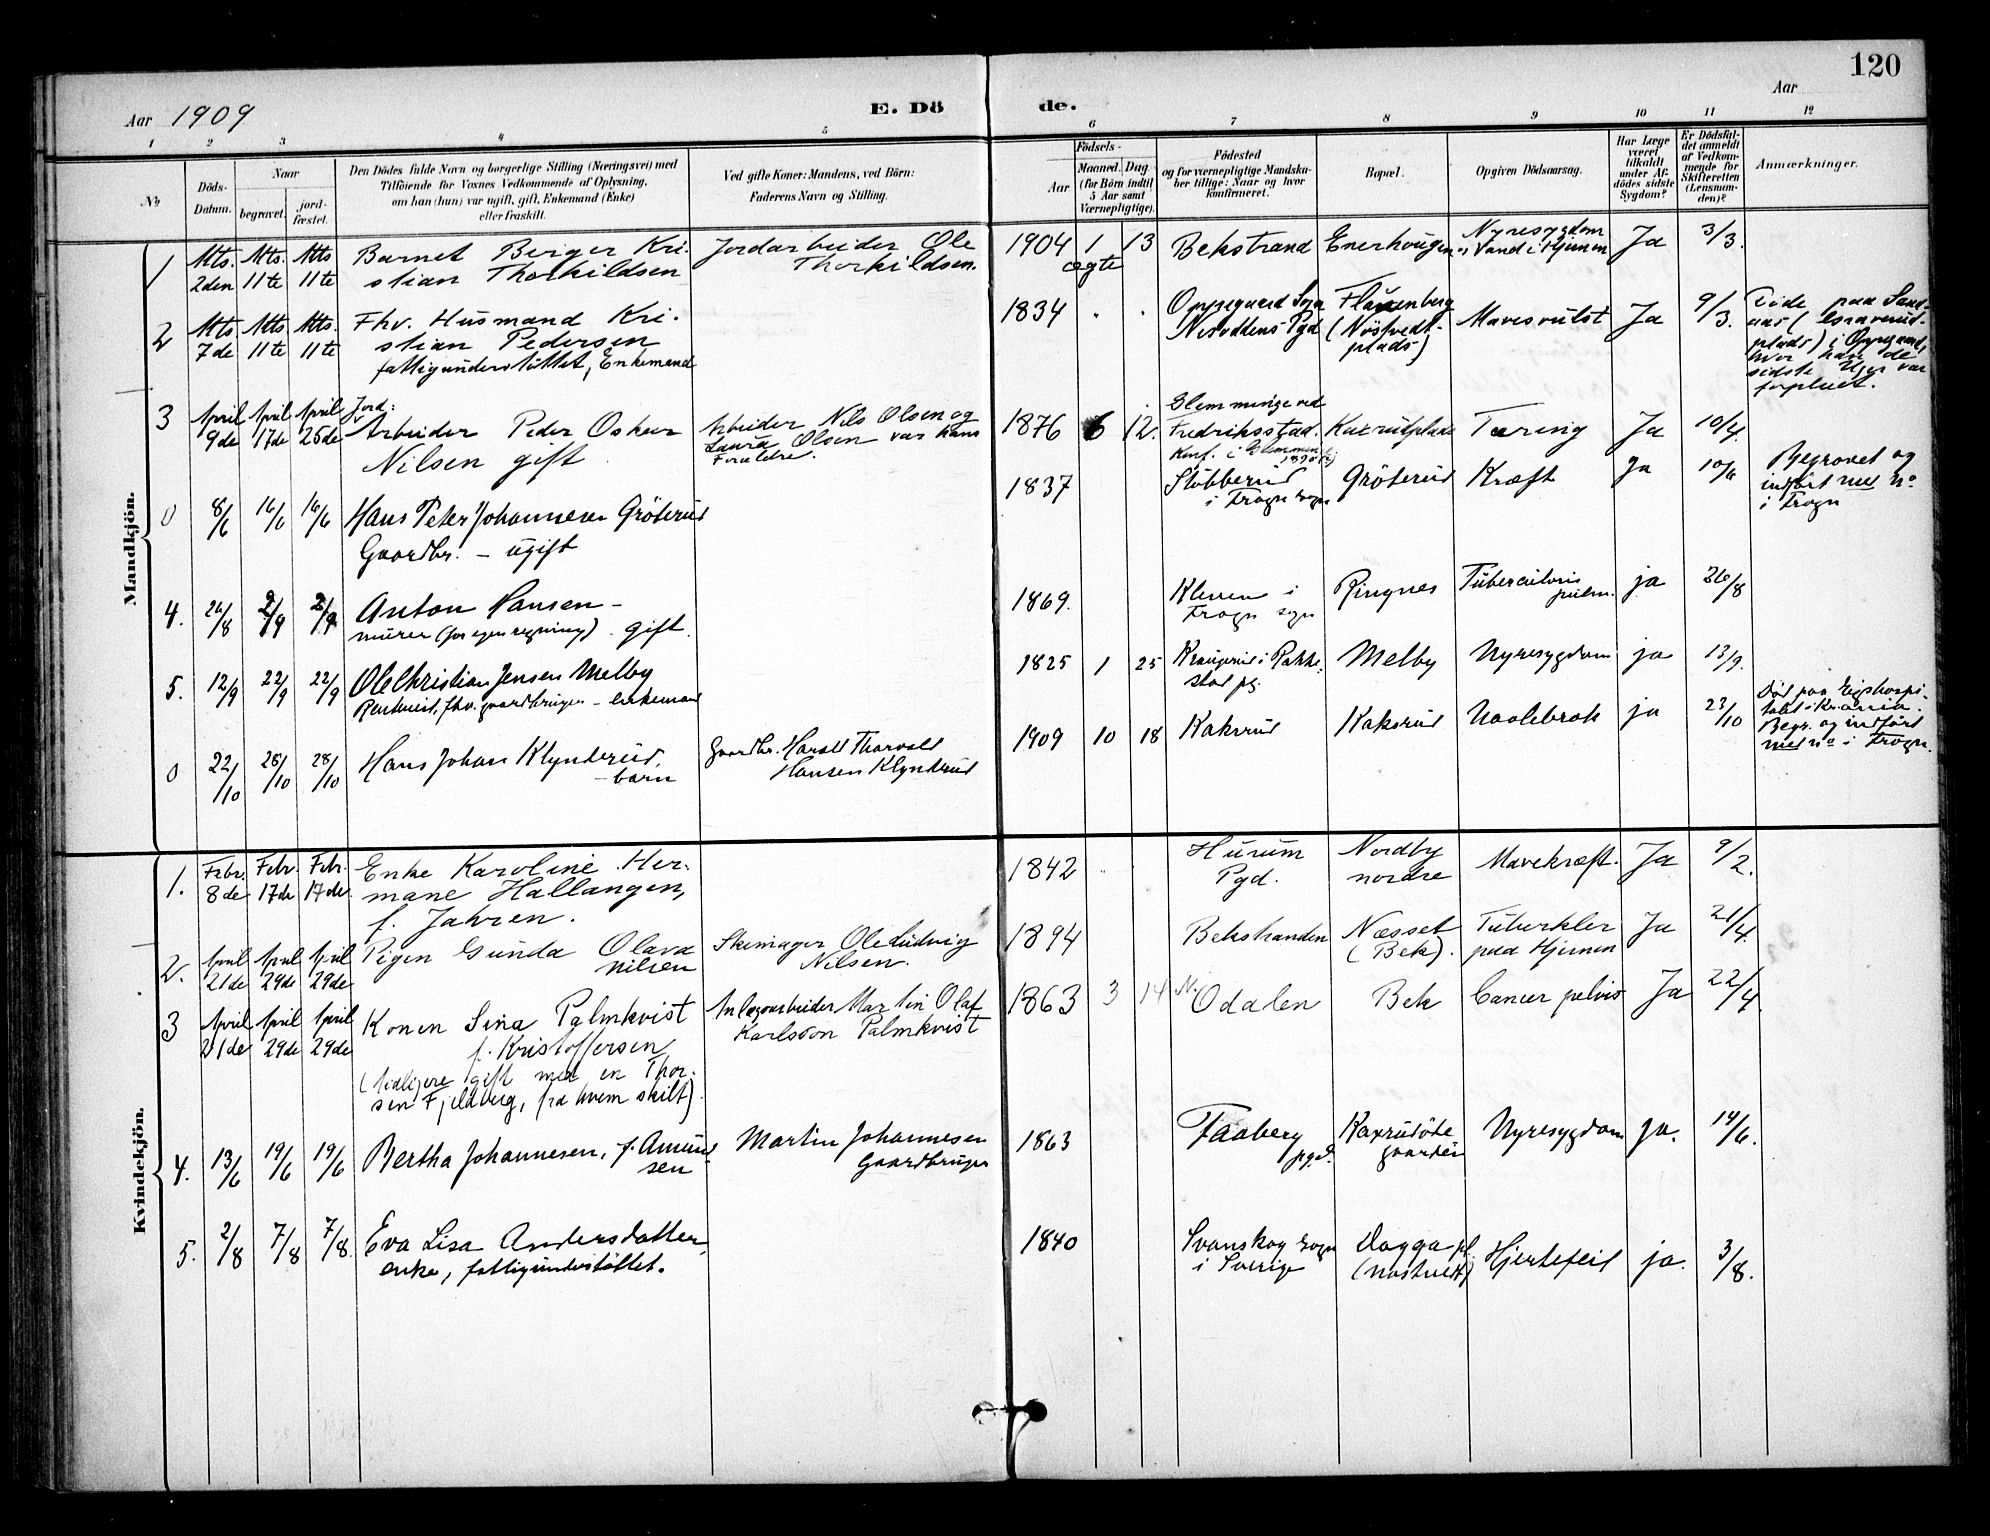 120
Aar 1909
E. Dö de.
Aar
1 2 3 4 5 6 7 8 9 10 11 12
No
Döds-Datum.
Naar
begravet.
jord-fæstet.
Den Dödes fulde Navn og borgerlige Stilling (Næringsvei) med
Tilföiende for Voxnes Vedkommende af Oplysning,
om han (hun) var ugift, gift, Enkemand (Enke)
eller fraskilt.
Ved gifte Koner: Mandens, ved Börn:
Faderens Navn og Stilling.
Födsels-
Aar
Maaned. Dag.
(for Börn indtil
5 Aar samt
Værnepligtige).
Födested
og for værnepligtige Mandska-
ber tillige: Naar og hvor
konfirmeret.
Bopæl.
Opgiven Dödsaarsag.
Har Læge
været
tilkaldt
under Af-
dödes sidste
Sygdom?
Er Dödsfal-
det anmeldt
af Vedkom-
mende for
Skifteretten
(Lensman-
den)?
Anmærkninger.
Mandkjön.
1 Mts. 2den Mts. 11te Mts 11te
Barnet Berger Kri-
stian Thorkildsen
Jordarbeider Ole
Thorkildsen.
1904 1 13
ægte
Bekstrand
Enerhougen
Nyresygdom
Vand i Hjernen
Ja 3/3.
2 Mts. 7de Mts. 11te Mts. 11te
Fhv. Husmand Kri-
stian Pedersen
fattigunderstöttet, Enkemand
1834 " "
Oppegaard Sogn
Nesoddens Pgd
Flaxenberg
(Nöstvedt-
plads)
Mavesvulst
Ja 9/3.
Döde paa Sand-
aas
plads) i Oppegaard,
hvor han de
sidste Uger var
forpleiet.
3 April 9de April 17de April 25de
Jord:
Arbeider Peder Oskar
Nilsen gift
Arbeider Nils Olsen og
Laura Olsen var hans
Forældre.
1876 6 12.
Glemminge ved
Fredriksstad.
Konf. i Glemminge
Kaxrudplads
Tæring
Ja 10/4.
0 8/6 16/6 16/6
Hans Peter Johannesen Gröterud
Gaardbr. - ugift
1837
Stubberud
i Frogn sogn
Gröterud
Kræft
Ja 10/6
Begravet og
indfört med No
i Frogn
4. 26/8 2/9 2/9
Anton Hansen -
murer (for egen regning) - gift.
1869.
Klemen i
Frogn sogn
Ringnes
Tuberculosis
pulm.
ja 26/8
5. 12/9 22/9 22/9
Ole Christian Jensen Melby
Rentenist, fhv. gaardbruger - enkemand
1825 1 25
Kraugerud i Rakke-
stad pg.
Melby
Nyresygdom
ja 13/9.
0 22/10 28/10 28/10
Hans Johan Klynderud,
- barn
Gaardbr. Harald Thorvald
Hansen Klynderud
1909 10 18
Kaksrud
Kaksrud
Navlebrok
ja 23/10
Död paa Rigshospi-
talet i Krania.
Begr. og indfört
med no i Frogn.
Kvindekjön.
1. Febr. 8de Febr. 17de Febr. 17de
Enke Karoline Her-
mane Hallangen,
f. Jahren.
1842 "
Hurum
Pgd.
Nordby
nordre
Mavekræft.
Ja 9/2.
2. April 21de April 29de April 29de
Pigen Gunda Olava
Nilsen
Skomager Ole Ludvig
Nilsen.
1894
Bekstranden
Næsset
(Bek).
Tuberkler
paa Hjernen
Ja 21/4.
3 April 21de April 29de April 29de
Konen Sina Palmkvist
f. Kristoffersen
(tidligere gift med en Thor-
sen Fjeldberg, fra hvem skilt).
Anlægsarbeider Martin Olaf
Karlsson Palmkvist
1863 3 14
N. Odalen
Bek
Cancer pelvis
Ja 22/4.
4. 13/6 19/6 19/6
Bertha Johannesen, f. Amund-
sen
Martin Johannesen
Gaardbruger
1863
Faaberg
pgd.
Kaxrudöde
gaarden
Nyresygdom
ja. 14/6.
5. 2/8 7/8 7/8.
Eva Lisa Andersdatter,
enke, fattigunderstöttet.
1840
Svanskog sogn
i Sverige
Dagga pl.
(Nöstvedt)
Hjertefeil
ja. 3/8.